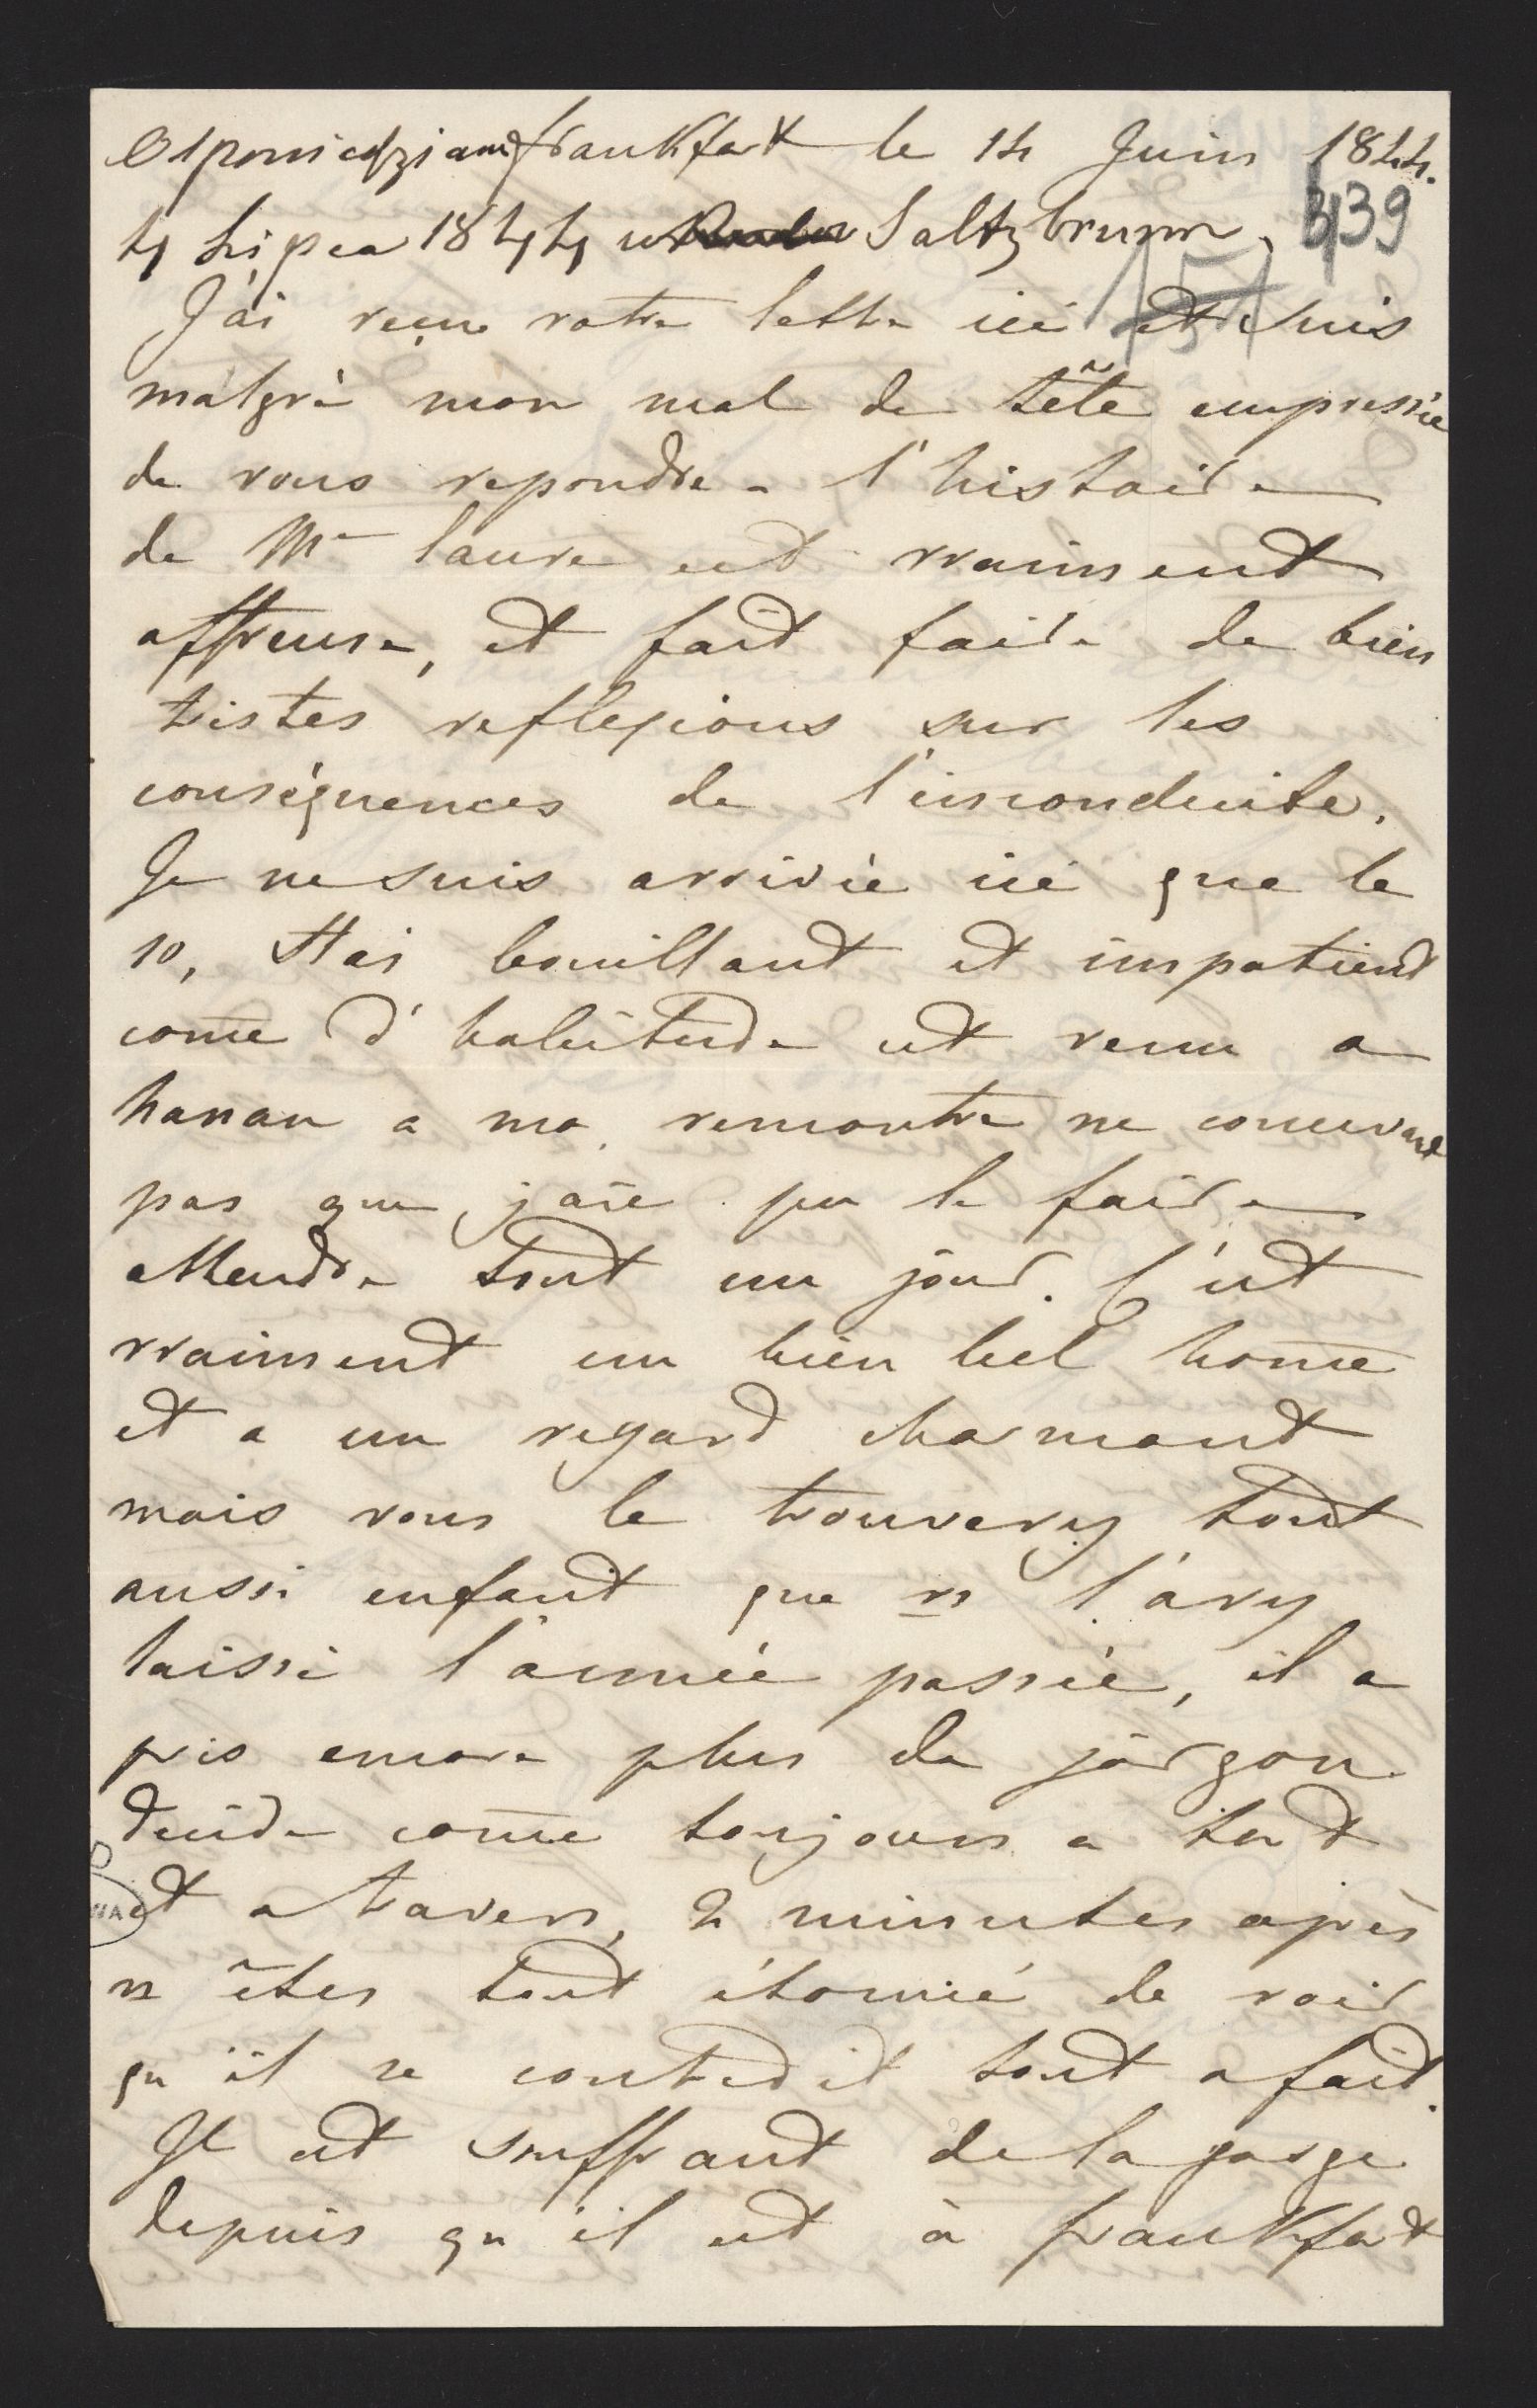 Odpowiedziane frankfort le 14 Juin 1844.
4 Lipca 1844 w Saltzbrunn, 3/39
151
J'ai reçue votre lettre ici et suis
malgré mon mal de tête empressée
de vous repondre - l'histoire
de Me laure est vraiment
affreuse, et fait faire de bien
tristes reflexions sur les
conséquences de l'inconduite.
Je ne suis arrivée ici que le
10, Stas bouillant et impatient
come d'habitude est venu a
hanau a ma rencontre ne concevant
pas que j'aie pu le faire
attendre tout un jour. C'est
vraiment un bien bel home
et a un regard charmant
mais vous le trouverez tout
aussi enfant que vs l'avez
laissé l'année passée, il a
pris encore plus de jargon
decide come toujours a tort
et a travers, 2 minutes après
vs êtes tout étonné de voir
qu'il se contredit tout a fait.
Il est souffrant de la gorge
depuis qu'il est à frankfort